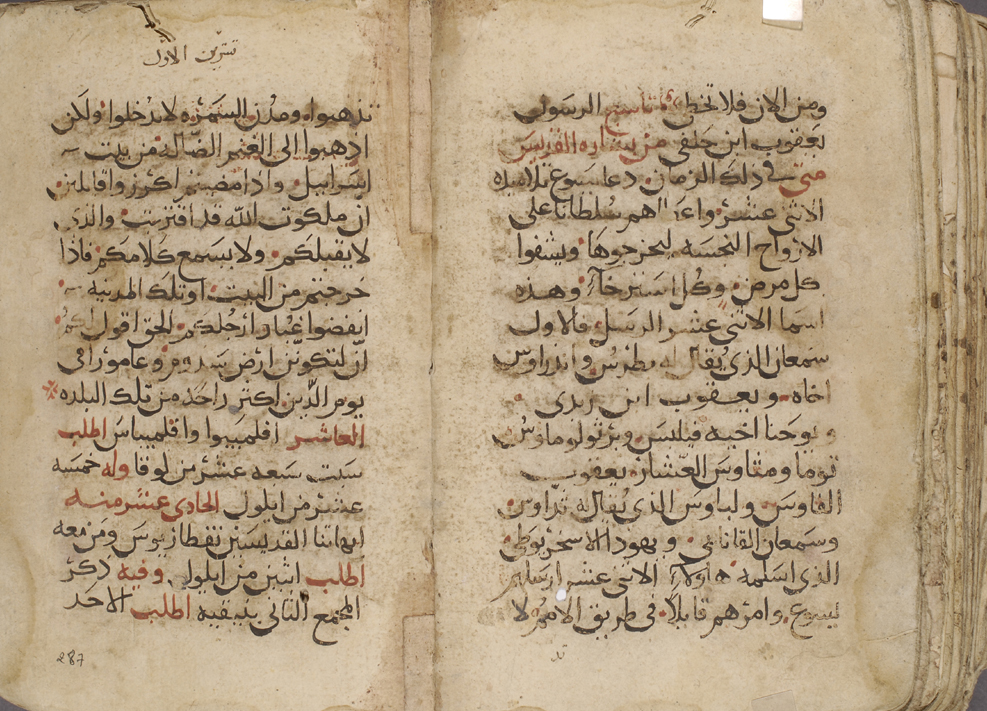 ومن الان فلا تخطئ تاسع الرسول
يعقوب ابن حلفى من بشاره القديس
متى في ذلك الزمان دعا يسوع تلاميذه
الاثنى عشر واعطاهم سلطانا على
الارواح النجسه ليخرجوها ويشفوا
كل مرض وكل استرخاء وهذه
اسما الاثنى عشر الرسل فالاول
سمعان الذى يقال له بطرس واندراوس
اخاه ويعقوب ابن زبدى
و يوحنا اخيه فيلبس وبرتولوماوس
توما ومتاوس العشار يعقوب
الفاوس ولباوس الذى يقال له تداوس
وسمعان القانانى ويهودا الاسخريوطى
الذى اسلمه هاولاء الاثنى عشر ارسلهم
يسوع وامرهم قايلا فى طريق الامم لا
تد
تشرين الاول
تذهبوا ومدن السمره لا تدخلوا ولكن
اذهبوا الى الغنم الضاله من بيت
اسراييل واذا مضيتم اكرزوا قايلين
ان ملكوت الله قد اقتربت والذى
لا يقبلكم ولا يسمع كلامكم فاذا
خرجتم من البيت او تلك المدينه
انفضوا غبار ارجلكم الحق اقول لكم
ان لتكونن ارض سدوم وعامورا فى
يوم الدين اكثر راحة من تلك البلده
العاشر افلمبيوا واقلمبياس اطلب
سبت سبعه عشر من لوقا وله خمسه
عشر من ايلول الحادى عشر منه
ابهاتنا القديسين نقطاريوس ومن معه
اطلب اثنين من ايلول وفيه ذكر
المجمع الثانى بنيقيه اطلب الاحد
287